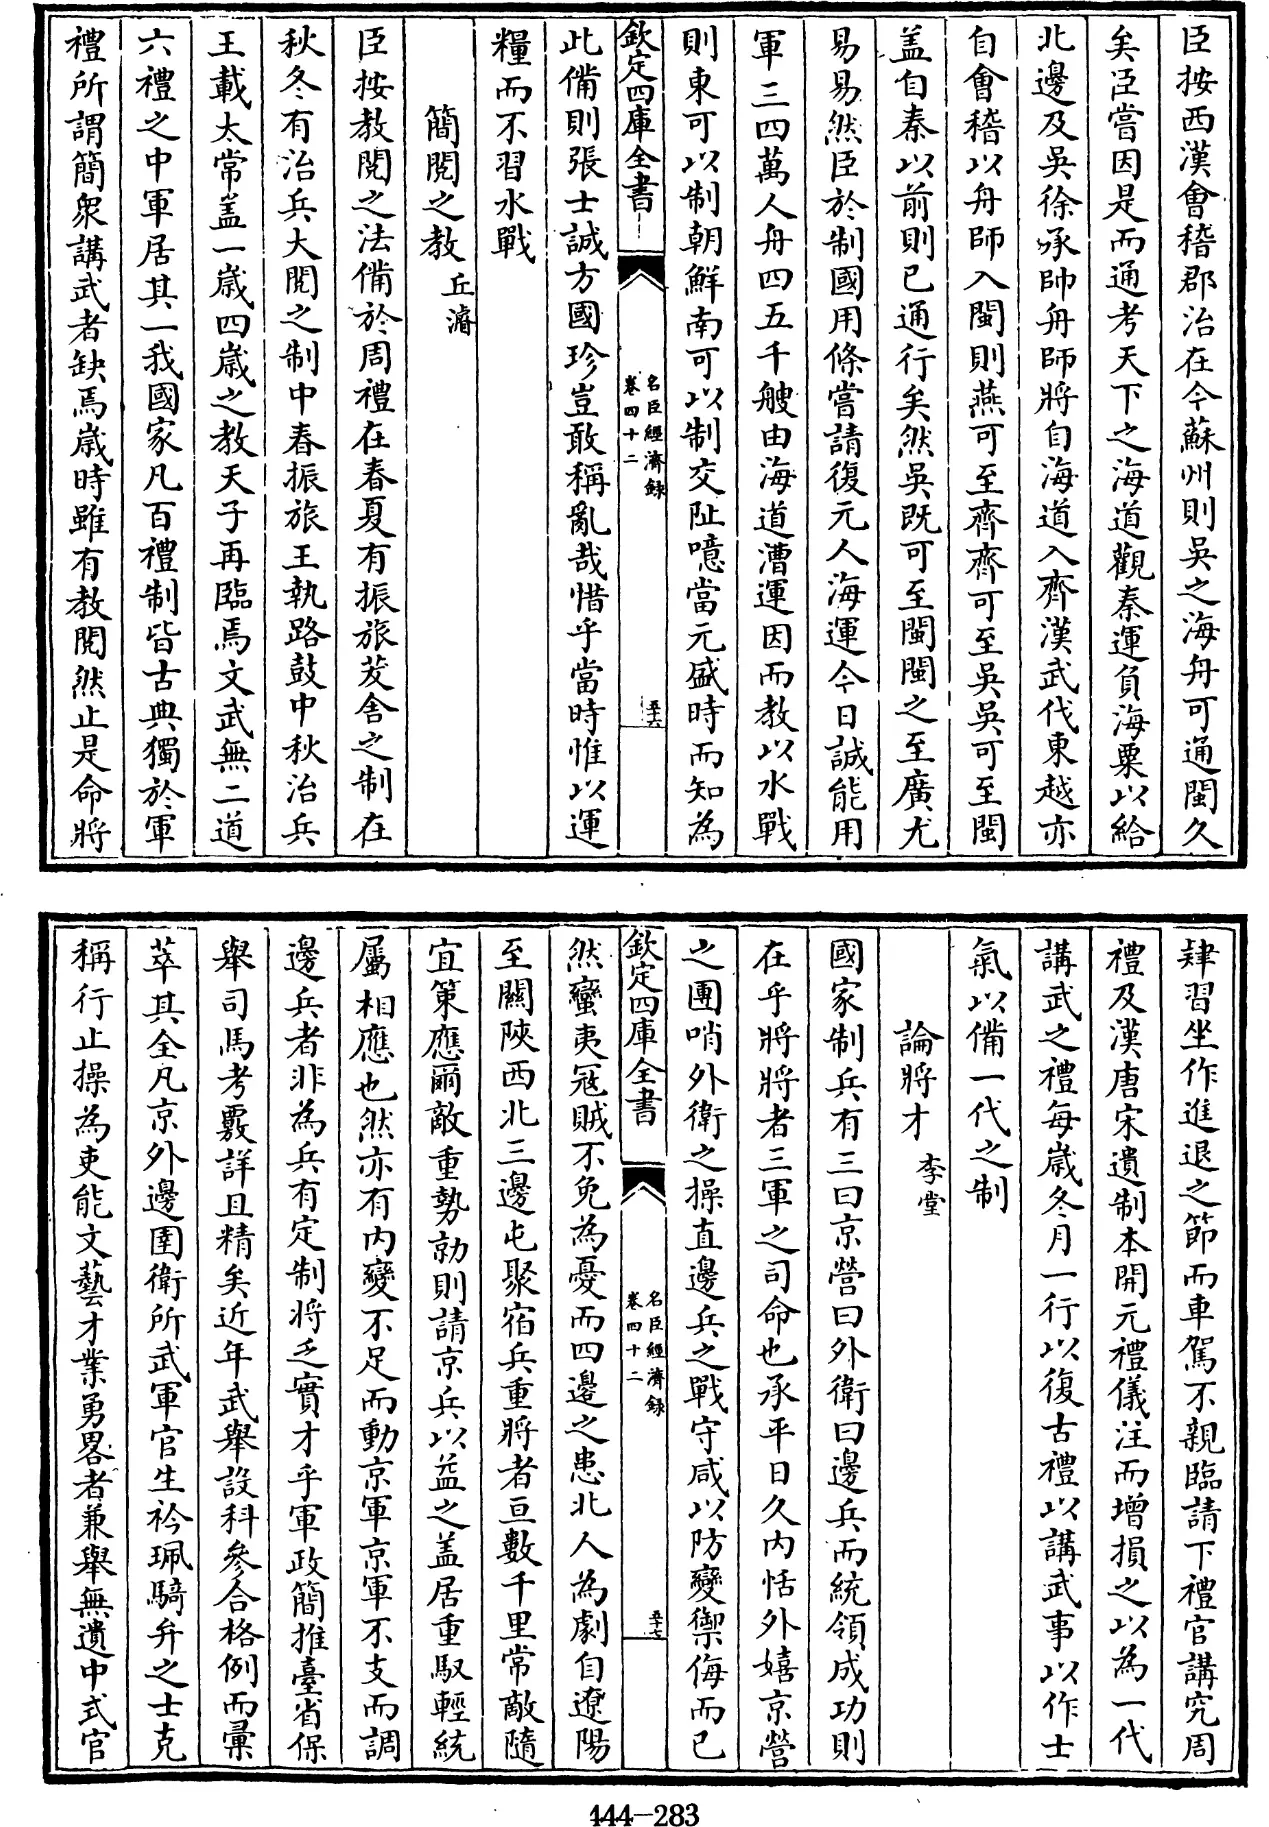 臣按西漢會稽郡治在今蘇州則吳之海舟可通閩久
矣臣嘗因是而通考天下之海道觀秦運負海粟以給
北邊及吳徐承帥舟師將自海道入齊漢武代東越亦
自會稽以舟師入閩則燕可至齊齊可至吳吳可至閩
盖自秦以前則已通行矣然吳既可至閩閩之至廣尤
易易然臣於制國用條嘗請復元人海運今日誠能用
軍三四萬人舟四五千艘由海道漕運因而教以水戰
則東可以制朝鮮南可以制交阯噫當元盛時而知為
欽定四庫全書
名臣經濟錄
卷四十二
五十六
此備則張士誠方國珍豈敢稱亂哉惜乎當時惟以運
糧而不習水戰
簡閱之教 丘濬
臣按教閱之法備於周禮在春夏有振旅茇舍之制在
秋冬有治兵大閱之制中春振旅王執路鼓中秋治兵
王載太常盖一歲四歲之教天子再臨焉文武無二道
六禮之中軍居其一我國家凡百禮制皆古典獨於軍
禮所謂簡衆講武者缺焉歲時雖有教閱然止是命將
肄習坐作進退之節而車駕不親臨請下禮官講究周
禮及漢唐宋遺制本開元禮儀注而增損之以為一代
講武之禮每歲冬月一行以復古禮以講武事以作士
氣以備一代之制
論將才 李堂
國家制兵有三曰京營曰外衛曰邊兵而統領成功則
在乎將將者三軍之司命也承平日久内恬外嬉京營
之團哨外衛之操直邊兵之戰守咸以防變禦侮而已
欽定四庫全書
名臣經濟錄
卷四十二
五十七
然蠻夷冦賊不免為憂而四邊之患北人為劇自遼陽
至關陜西北三邊屯聚宿兵重將者亘數千里常敵隨
宜策應爾敵重勢勍則請京兵以益之盖居重馭輕統
屬相應也然亦有内變不足而動京軍京軍不支而調
邊兵者非為兵有定制將乏實才乎軍政簡推臺省保
舉司馬考覈詳且精矣近年武舉設科參合格例而彙
萃其全凡京外邊圉衛所武軍官生衿珮騎弁之士克
稱行止操為吏能文藝才業勇畧者兼舉無遺中式官
444—283